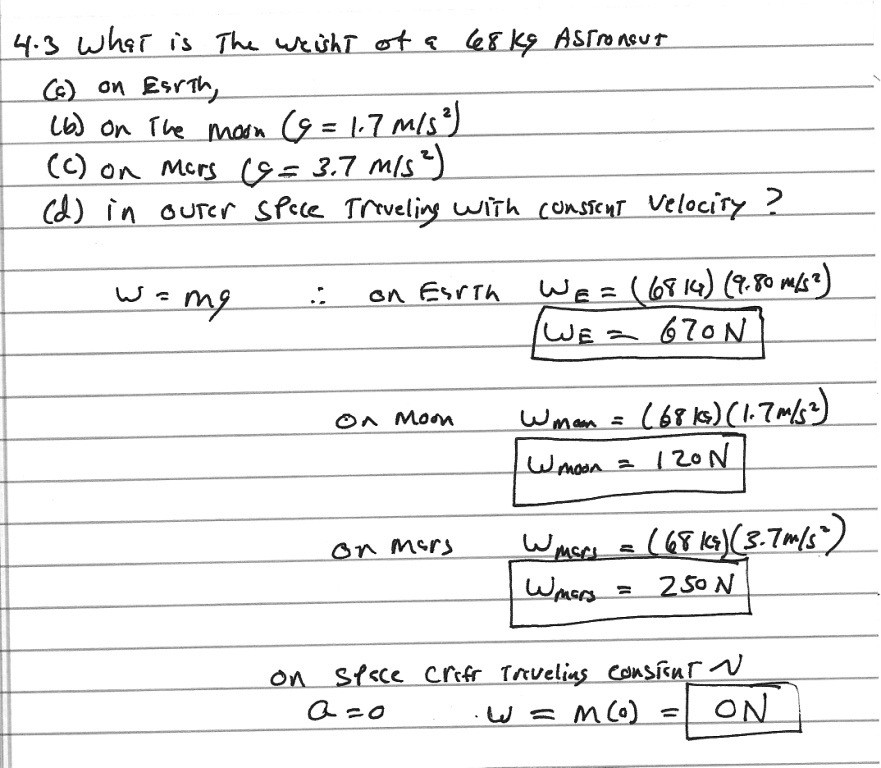 4.3 What is The weight of a 68 kg Astronaut
(a) on Earth,
(b) on The moon (g = 1.7 m/s²)
(c) on Mars (g = 3.7 m/s²)
(d) in outer space Traveling with constant velocity?
W = mg ∴ on Earth W_E = (68 kg) (9.80 m/s²)
W_E = 670 N
on Moon W_moon = (68 kg) (1.7 m/s²)
W_moon = 120 N
on Mars W_mars = (68 kg) (3.7 m/s²)
W_mars = 250 N
on space craft Traveling constant v
a = 0 . W = m(0) = 0N